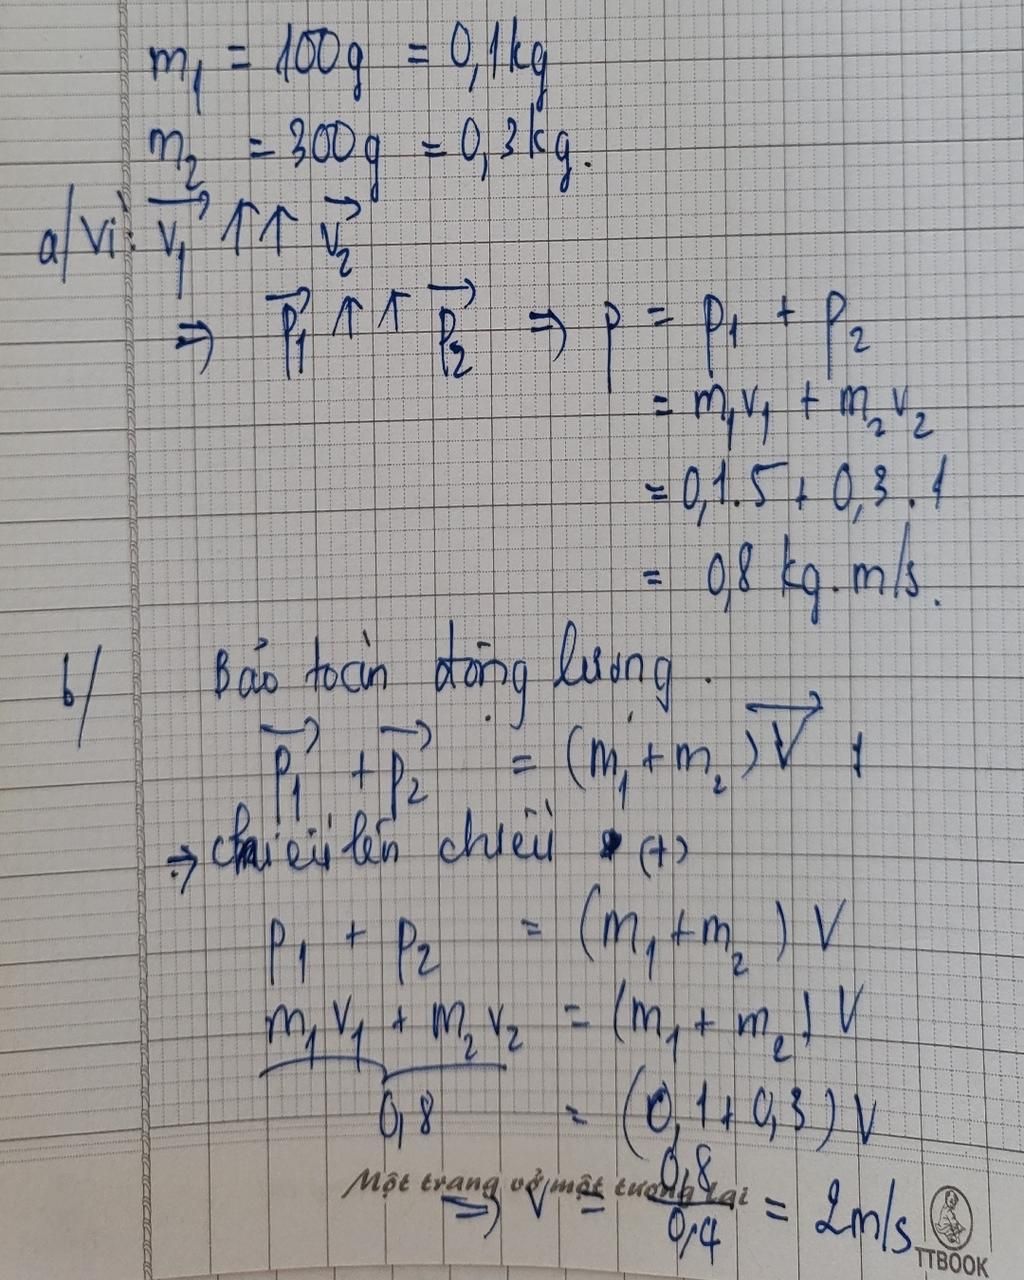 m₁ = 100g = 0,1kg
m₂ = 300g = 0,3kg.
a/ Vì: v₁→ ↑↑ v₂→
⇒ p₁→ ↑↑ p₂→ ⇒ p = p₁ + p₂
= m₁v₁ + m₂v₂
= 0,1.5 + 0,3.1
= 0,8 kg.m/s.
b/ Bảo toàn động lượng.
p₁→ + p₂→ = (m₁+m₂)V→
⇒ chiếu lên chiều (+)
p₁ + p₂ = (m₁+m₂) V
m₁v₁ + m₂v₂ = (m₁+m₂) V
0,8 = (0,1+0,3)V
Một trang vở một tương lai
⇒ V = 0,8/0,4 = 2m/s
TTBOOK